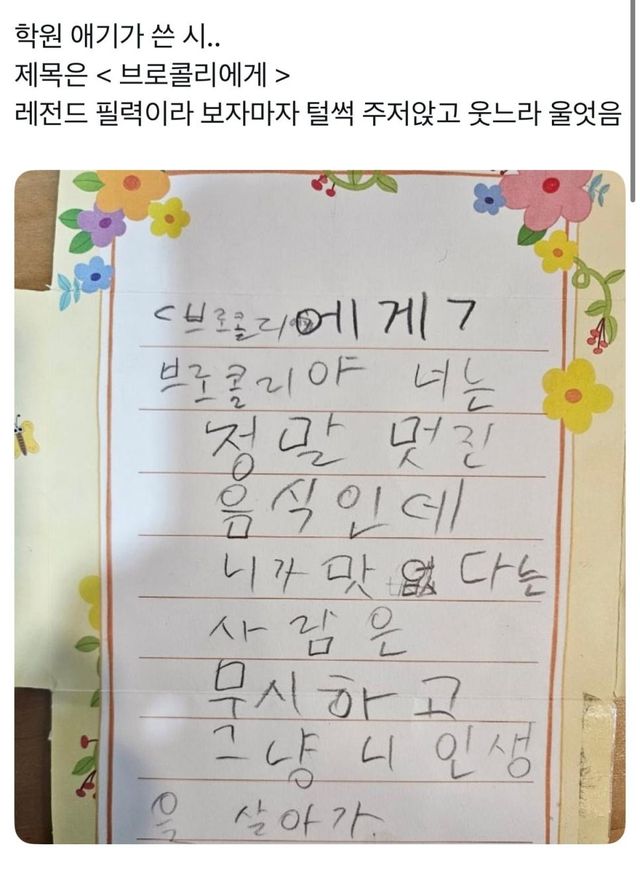 학원 애기가 쓴 시..
제목은 < 브로콜리에게 >
레전드 필력이라 보자마자 털썩 주저앉고 웃느라 울엇음
<브로콜리에게>
브로콜리야 너는
정말 멋진
음식인데
니가 맛 없다는
사람은
무시하고
그냥 니 인생
을 살아가.